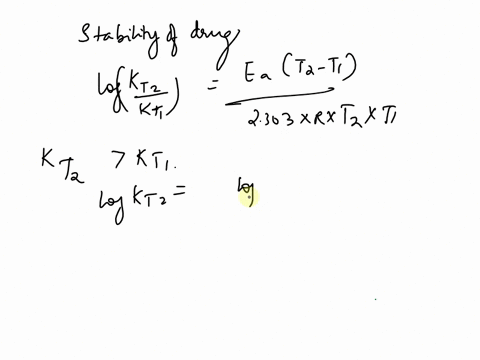 Stability of drug
log(KT2/KT1) = Ea (T2-T1)/2.303 x R x T2 x T1
KT2 > KT1.
log KT2 = log